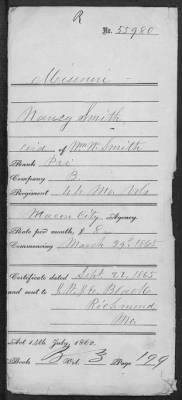 R
No. 55980
Missouri
Nancy Smith
wid of Wm W. Smith
Rank Pri
Company B
Regiment 44 Mo Vols
Macon City, Agency.
Rate per month, $ 8
Commencing March 29, 1865
Certificate dated Sept 22, 1865
and sent to
Richmond
Mo.
Act 14th July, 1862.
Book B Vol. 3 Page 129